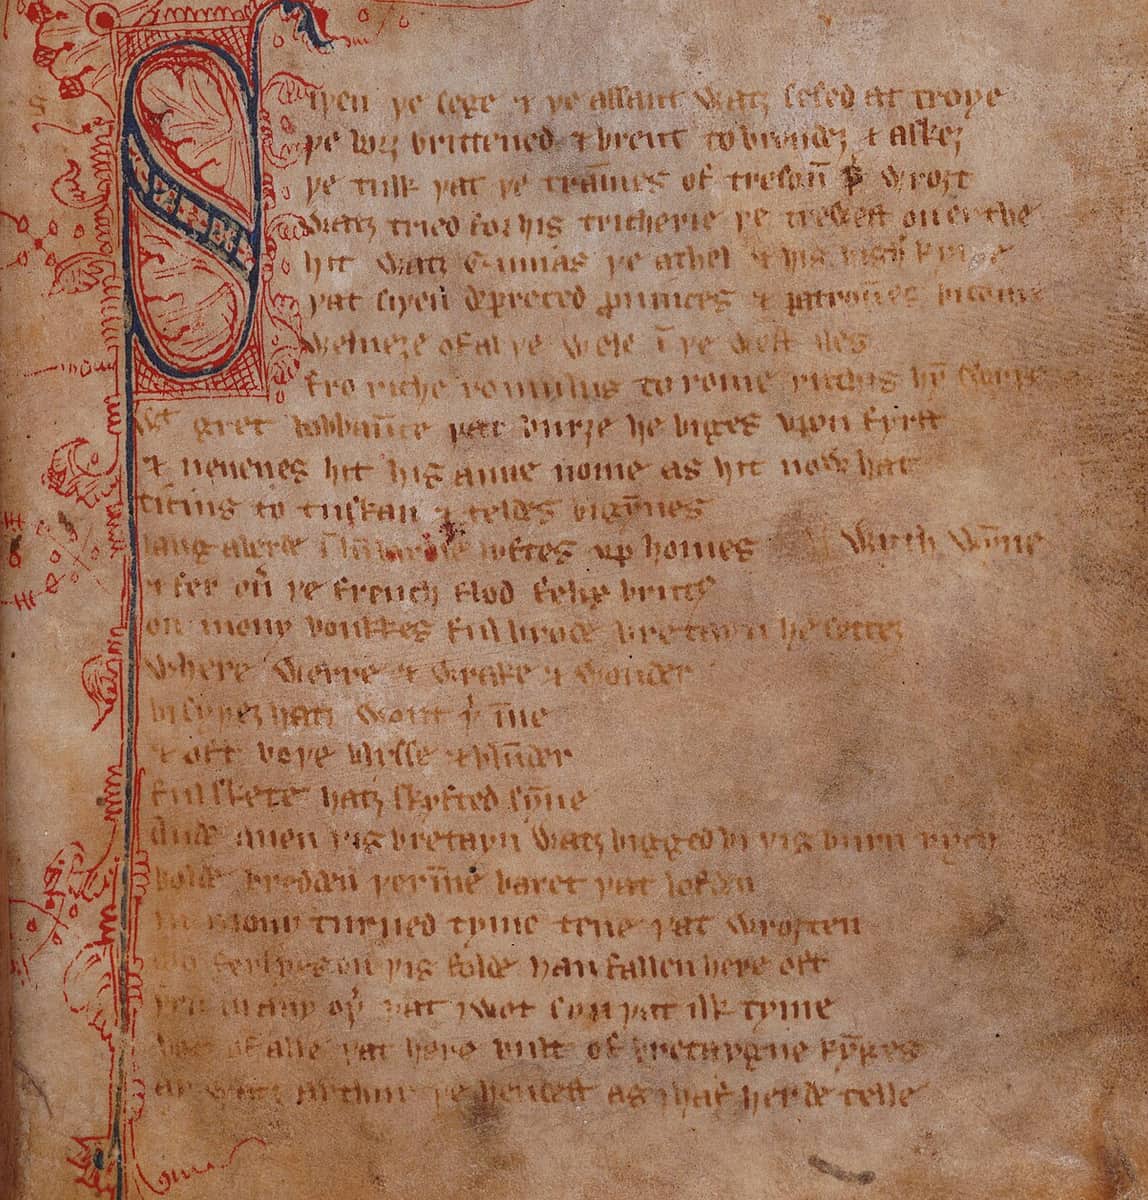 Siþen þe sege & þe assaut watȝ sesed at troye
þe borȝ brittened & brent to brondeȝ & askeȝ
þe tulk þat þe trāmes of tresoū þ̉ wroȝt
Watȝ tried for his tricherie þe trewest on erthe
hit watȝ Ennias þe athel & his highe kynde
þat siþen depreced prouinces & patrounes bicome
Welneȝe of al þe wele ī þe west iles
fro riche romulus to rome ricchis hȳ swyþe
Wt gret bobbaūce þat burȝe he biges vpon fyrst
& neuenes hit his aune nome as hit now hat
ticius to tuskan & teldes bigȳnes
langaberde ī lūbardie lyftes vp homes
With wȳne
& fer oủ þe french flod felix brutꝰ
on mony bonkkes ful brode bretayn he setteȝ
Where werre & wrake & wonder
bi syþeȝ hatȝ wont þ̉ īne
& oft boþe blysse & blūder
ful skete hatȝ skyfted sȳne
Ande quen þis bretayn watȝ bigged bi þis burn rych
bolde bredden þerīne baret þat lofden
in mony turned tyme tene þat wroȝten
mo ferlyes on þis folde han fallen here oft
þen in any oþ̉ þat I wot syn þat ilk tyme
Bot of alle þat here bult of bretaygne kȳges
ay watȝ Arthur þe hendest as I haf herde telle